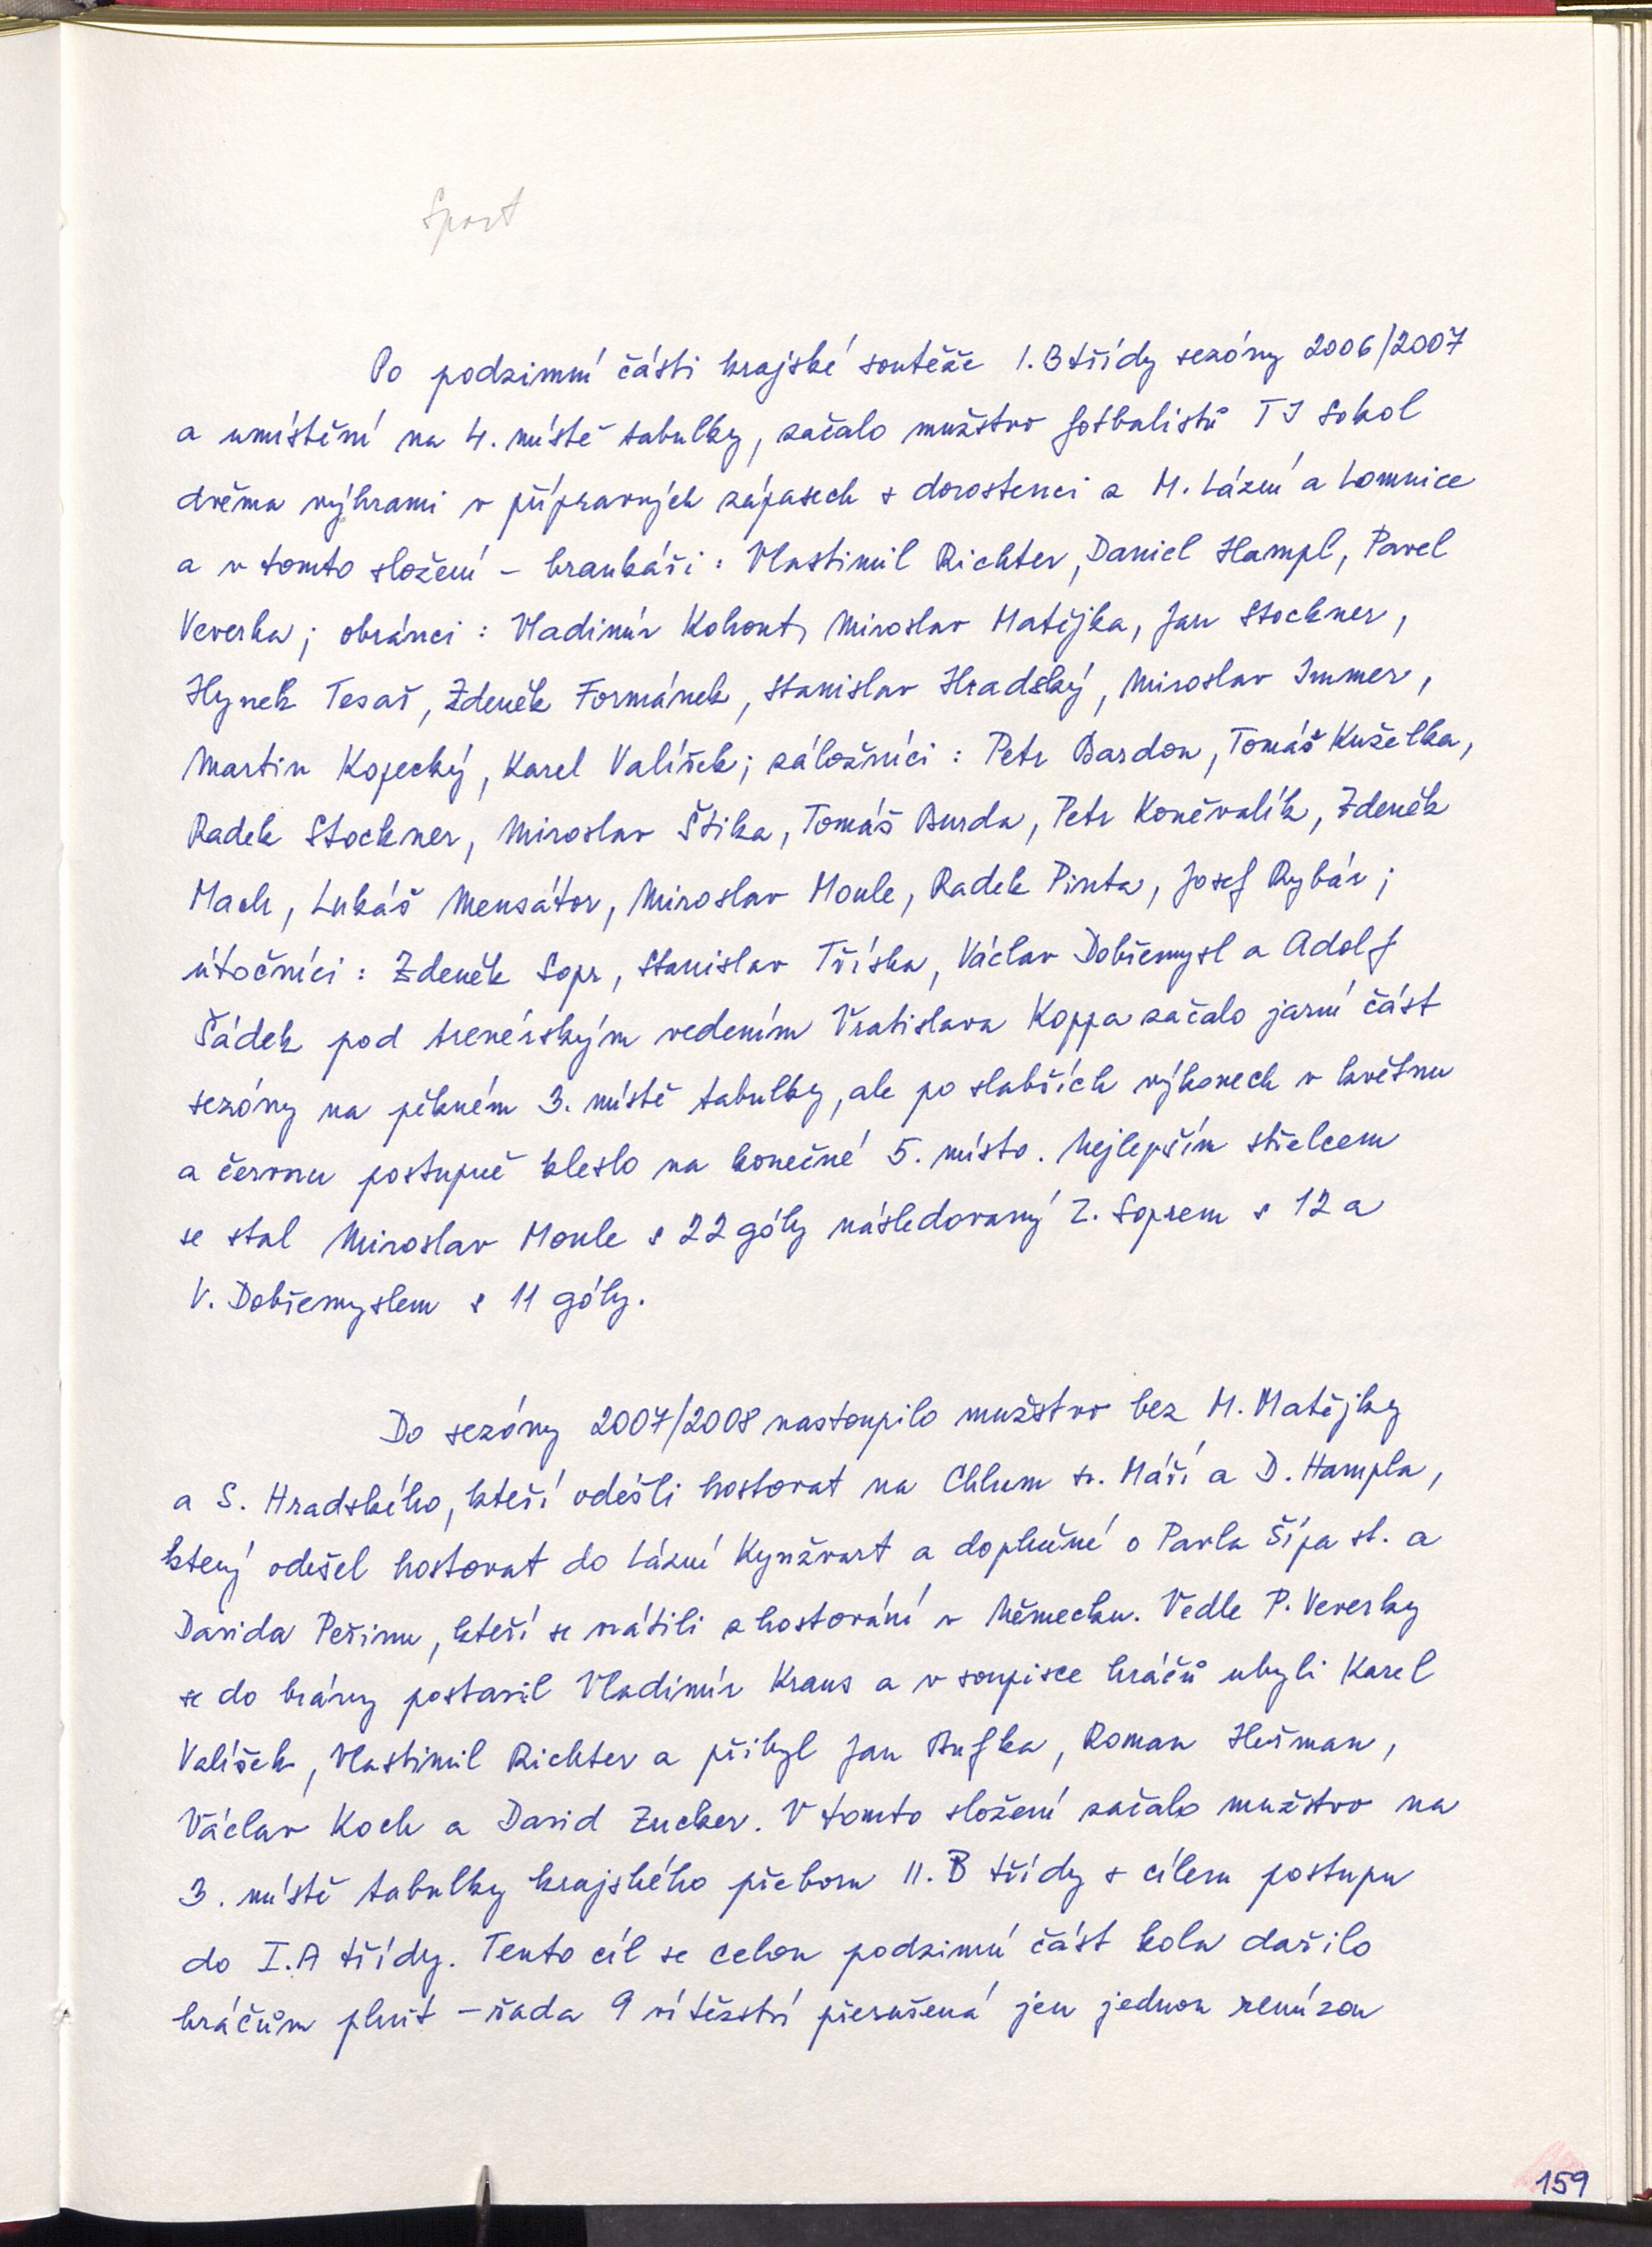 Sport
Po podzimní části krajské soutěže 1.B třídy sezóny 2006/2007
a umístění na 4. místě tabulky, začalo mužstvo fotbalistů TJ Sokol
dvěma výhrami v přípravných zápasech s dorostenci z M. Lázní a Lomnice
a v tomto složení – brankáři: Vlastimil Richter, Daniel Hampl, Pavel
Veverka; obránci: Vladimír Kohout, Miroslav Matějka, Jan Stockner,
Hynek Tesař, Zdeněk Formánek, Stanislav Hradský, Miroslav Immer,
Martin Kopecký, Karel Valíček; záložníci: Petr Bardon, Tomáš Kuželka,
Radek Stockner, Miroslav Štika, Tomáš Burda, Petr Koněvalík, Zdeněk
Mach, Lukáš Mensátor, Miroslav Moule, Radek Pinta, Josef Rybár;
útočníci: Zdeněk Sopr, Stanislav Tříska, Václav Dobřemysl a Adolf
Šádek pod trenérským vedením Vratislava Koppa začalo jarní část
sezóny na pěkném 3. místě tabulky, ale po slabších výkonech v květnu
a červnu postupně kleslo na konečné 5. místo. Nejlepším střelcem
se stal Miroslav Moule s 22 góly následovaný Z. Soprem s 12 a
V. Dobřemyslem s 11 góly.
Do sezóny 2007/2008 nastoupilo mužstvo bez M. Matějky
a S. Hradského, kteří odešli hostovat na Chlum sv. Máří a D. Hampla,
který odešel hostovat do Lázní Kynžvart a doplněné o Pavla Šípa st. a
Davida Peřinu, kteří se vrátili z hostování v Německu. Vedle P. Veverky
se do brány postavil Vladimír Kraus a v soupisce hráčů ubyli Karel
Valíček, Vlastimil Richter a přibyl Jan Bufka, Roman Heřman,
Václav Koch a David Zucker. V tomto složení začalo mužstvo na
3. místě tabulky krajského přeboru 11. B třídy s cílem postupu
do I.A třídy. Tento cíl se celou podzimní část kola dařilo
hráčům plnit – řada 9 vítězství přerušená jen jednou remízou
159